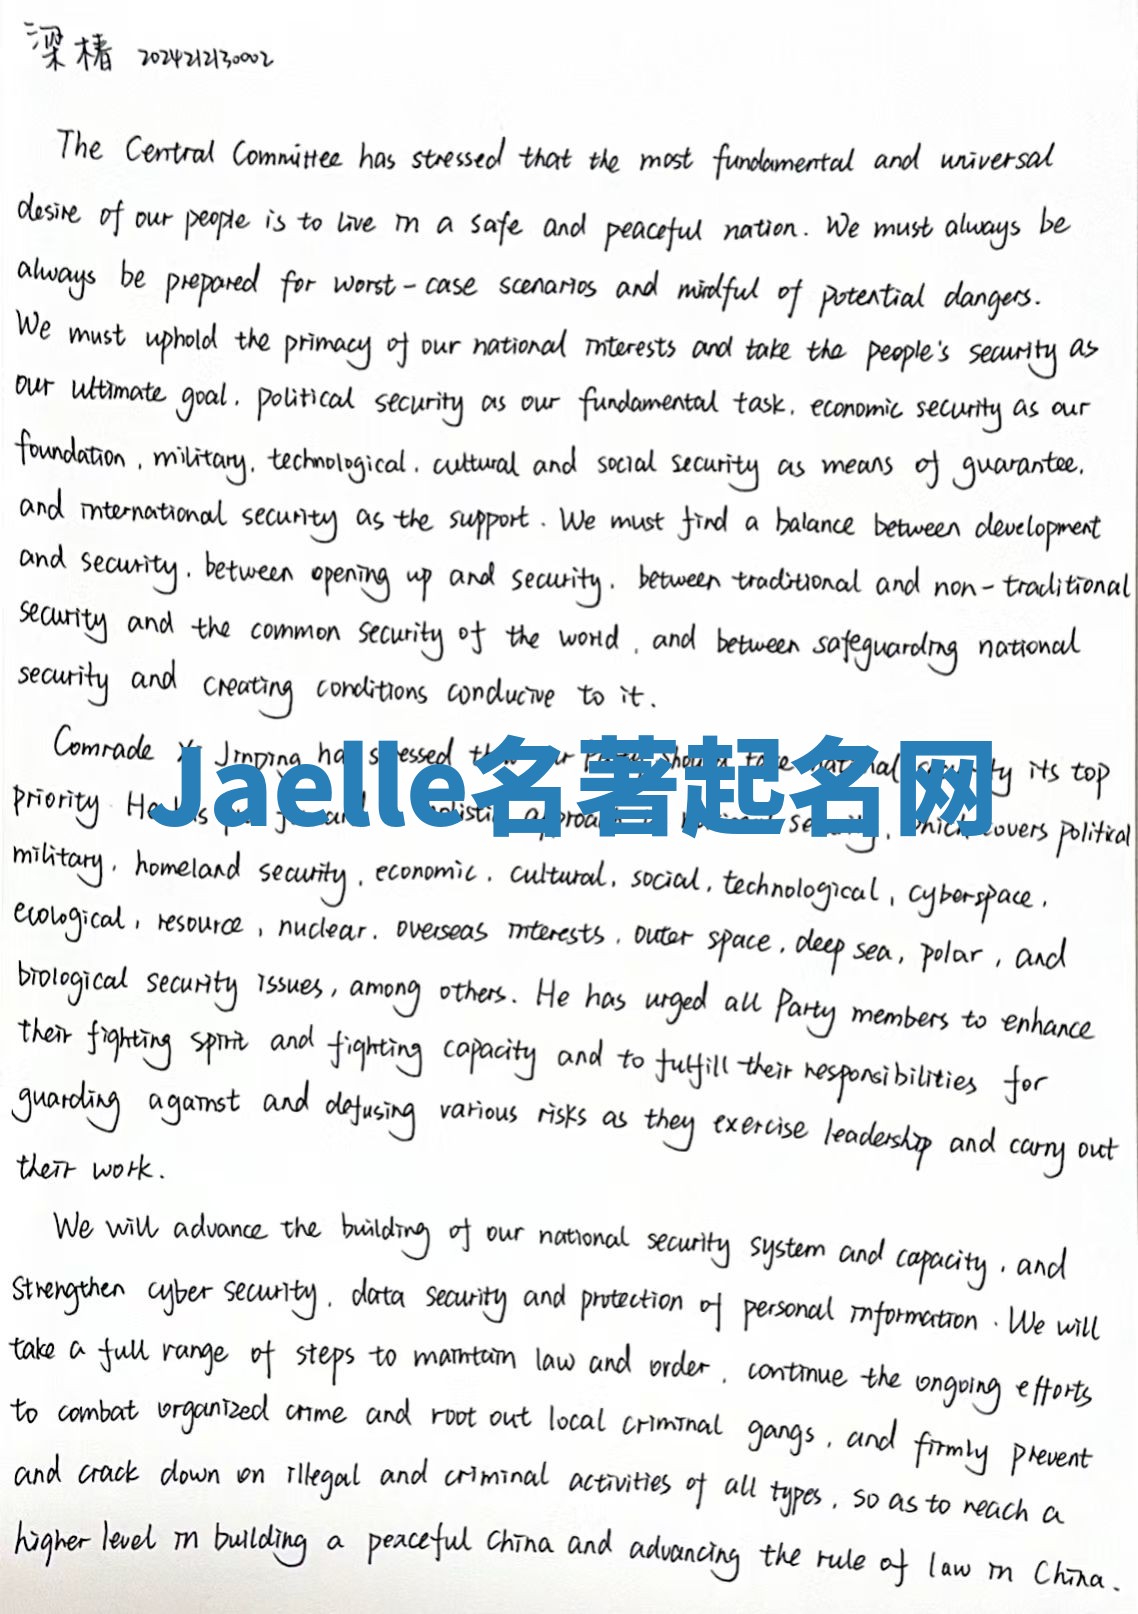 梁椿 2024212130002
The Central Committee has stressed that the most fundamental and universal
desire of our people is to live in a safe and peaceful nation. We must always be
always be prepared for worst-case scenarios and mindful of potential dangers.
We must uphold the primacy of our national interests and take the people's security as
our ultimate goal, political security as our fundamental task, economic security as our
foundation, military, technological, cultural and social security as means of guarantee,
and international security as the support. We must find a balance between development
and security, between opening up and security, between traditional and non-traditional
security and the common security of the world, and between safeguarding national
security and creating conditions conducive to it.
Comrade Xi Jinping has stressed should take national security its top
Jaelle名著起名网
priority. He has approach security, which covers political
military, homeland security, economic, cultural, social, technological, cyberspace,
ecological, resource, nuclear, overseas interests, outer space, deep sea, polar, and
biological security issues, among others. He has urged all Party members to enhance
their fighting spirit and fighting capacity and to fulfill their responsibilities for
guarding against and defusing various risks as they exercise leadership and carry out
their work.
We will advance the building of our national security system and capacity, and
strengthen cyber security, data security and protection of personal information. We will
take a full range of steps to maintain law and order, continue the ongoing efforts
to combat organized crime and root out local criminal gangs, and firmly prevent
and crack down on illegal and criminal activities of all types, so as to reach a
higher level in building a peaceful China and advancing the rule of law in China.